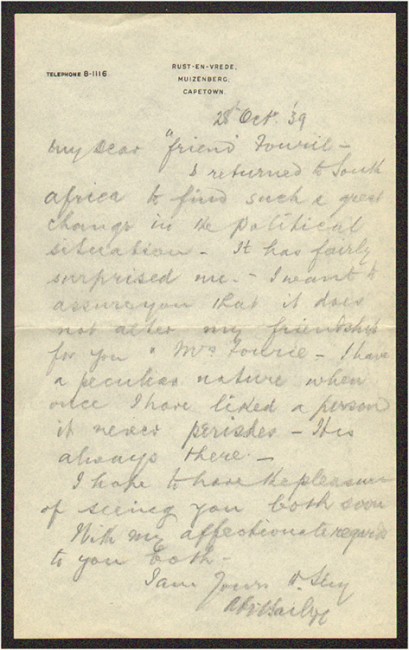 TELEPHONE 8-1116.
RUST-EN-VREDE,
MUIZENBERG.
CAPETOWN.
28th Oct. '39
My Dear "friend" Fourie -
I returned to South
Africa to find such a great
change in the political
situation - It has fairly
surprised me. - I want to
assure you that it does
not alter my friendship
for you & Mrs Fourie - I have
a peculiar nature when
once I have liked a person
it never perishes - It is
always there. -
I hope to have the pleasure
of seeing you both soon
With my affectionate regards
to you both -
I am Yours
Abe Bailey